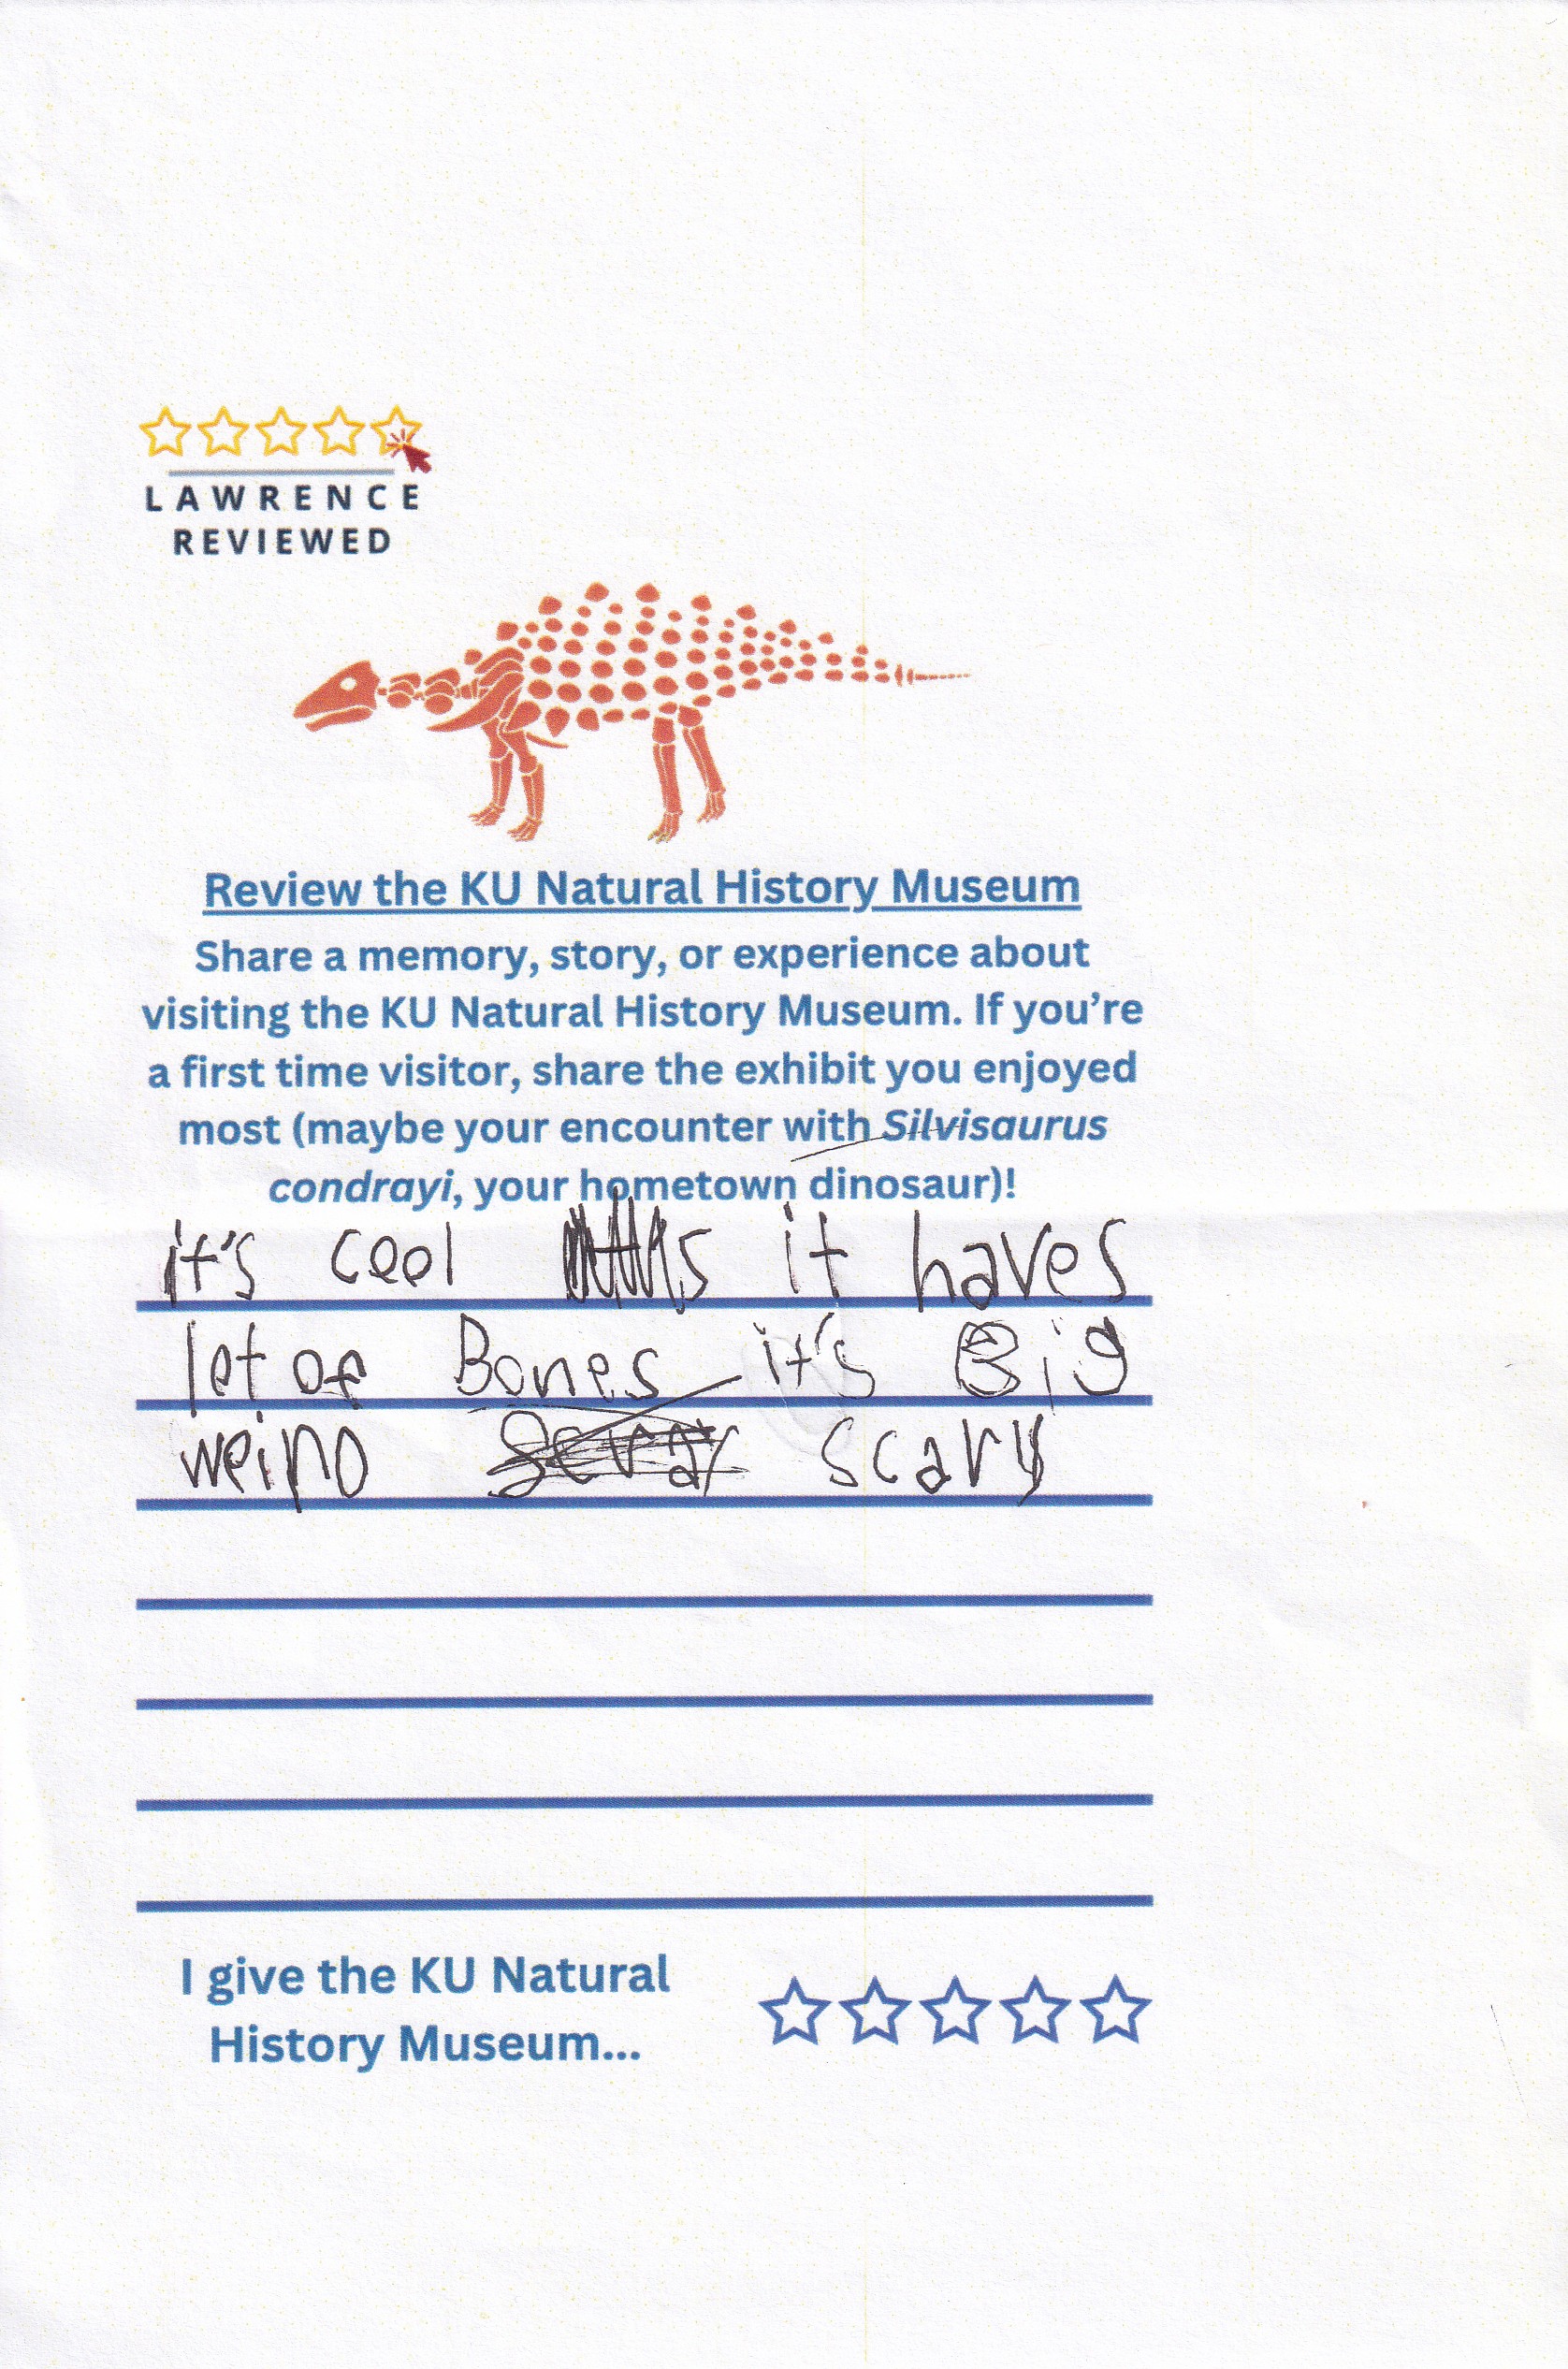 LAWRENCE
REVIEWED
Review the KU Natural History Museum
Share a memory, story, or experience about
visiting the KU Natural History Museum. If you're
a first time visitor, share the exhibit you enjoyed
most (maybe your encounter with Silvisaurus
condrayi, your hometown dinosaur)!
it's cool it haves
lot of Bones it's Big
weird scary
I give the KU Natural
History Museum...